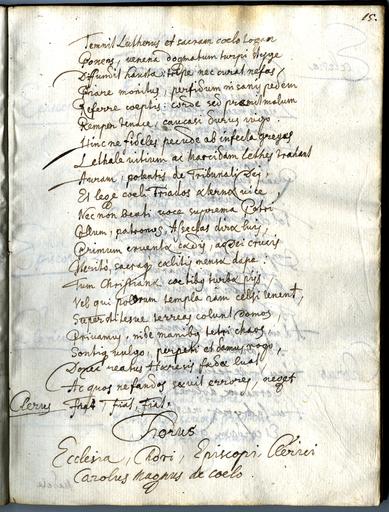 15.
Temnit Lutherus et sacram coelo togam
Ponens, venena dogmatum turpi
Diffundit hausta: nec curat nefas,
monitus, perfidum in sanum pedem
Referre coeptis: corde sed pravit malum
Semper tenaci, caucasi durus iugo.
Hinc ne fideles pecude ab infecta greges
Lethale vitium ac marcidam Lethes trahant
Auram, potentis de Tribunali Dei,
Et lege coeli Triados aeterna vice,
Nec non beati voce suprema Petri
patronos, Asseclas dirae luis,
Primum cruenta caede, ac Dei crucis
Merito, sacraque caelitis mensae dape
Tum Christiana coetibus turba piis
Vel qui polorum templa iam celsi tenent,
Superstitesve terreas colunt domos
Privamus, inde manibus tetri chaos
Sontis vulgo, perpeti et damus rogo,
Donec reatus Haeresis luat,
Ac quos nefandos sevit errores, neget
Clerus Fiat, Fiat, Fiat.
Chorus
Ecclesia, Chori, Episcopi, Clerici
Carolus Magnus de coelo.